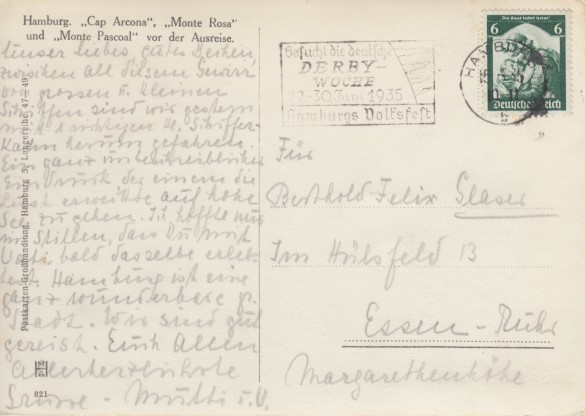 Hamburg. „Cap Arcona", „Monte Rosa"
und „Monte Pascoal" vor der Ausreise.
Unser liebes gutes
zwischen all diesem
von grossen u. kleinen
Schiffen sind wir gestern
mit 1 kl. Schiffer-
Kahn herum gefahren.
Ein ganz unbeschreiblicher
Eindruck der einem die
Lust erweckte auf hohe
See zu gehen. Ich hoffte nur
im Stillen, dass Du mit
Vati bald dasselbe erleb-
test. Hamburg ist eine
ganz wunderbare gr.
Stadt. Wir sind gut
gereist. Euch Allen
Allerherzlichste
Grüsse - Mutti u. V.
Postkarten-Großhandlung, Hamburg 3, Langereihe 47-49
821
Besucht die deutsche
DERBY-
WOCHE
22-30. Juni 1935
Hamburgs Volksfest
HAMBURG
6 6
Deutsches Reich
Für
Berthold Felix Glaser
Im Hülsfeld 13
Essen-Ruhr
Margarethenhöhe